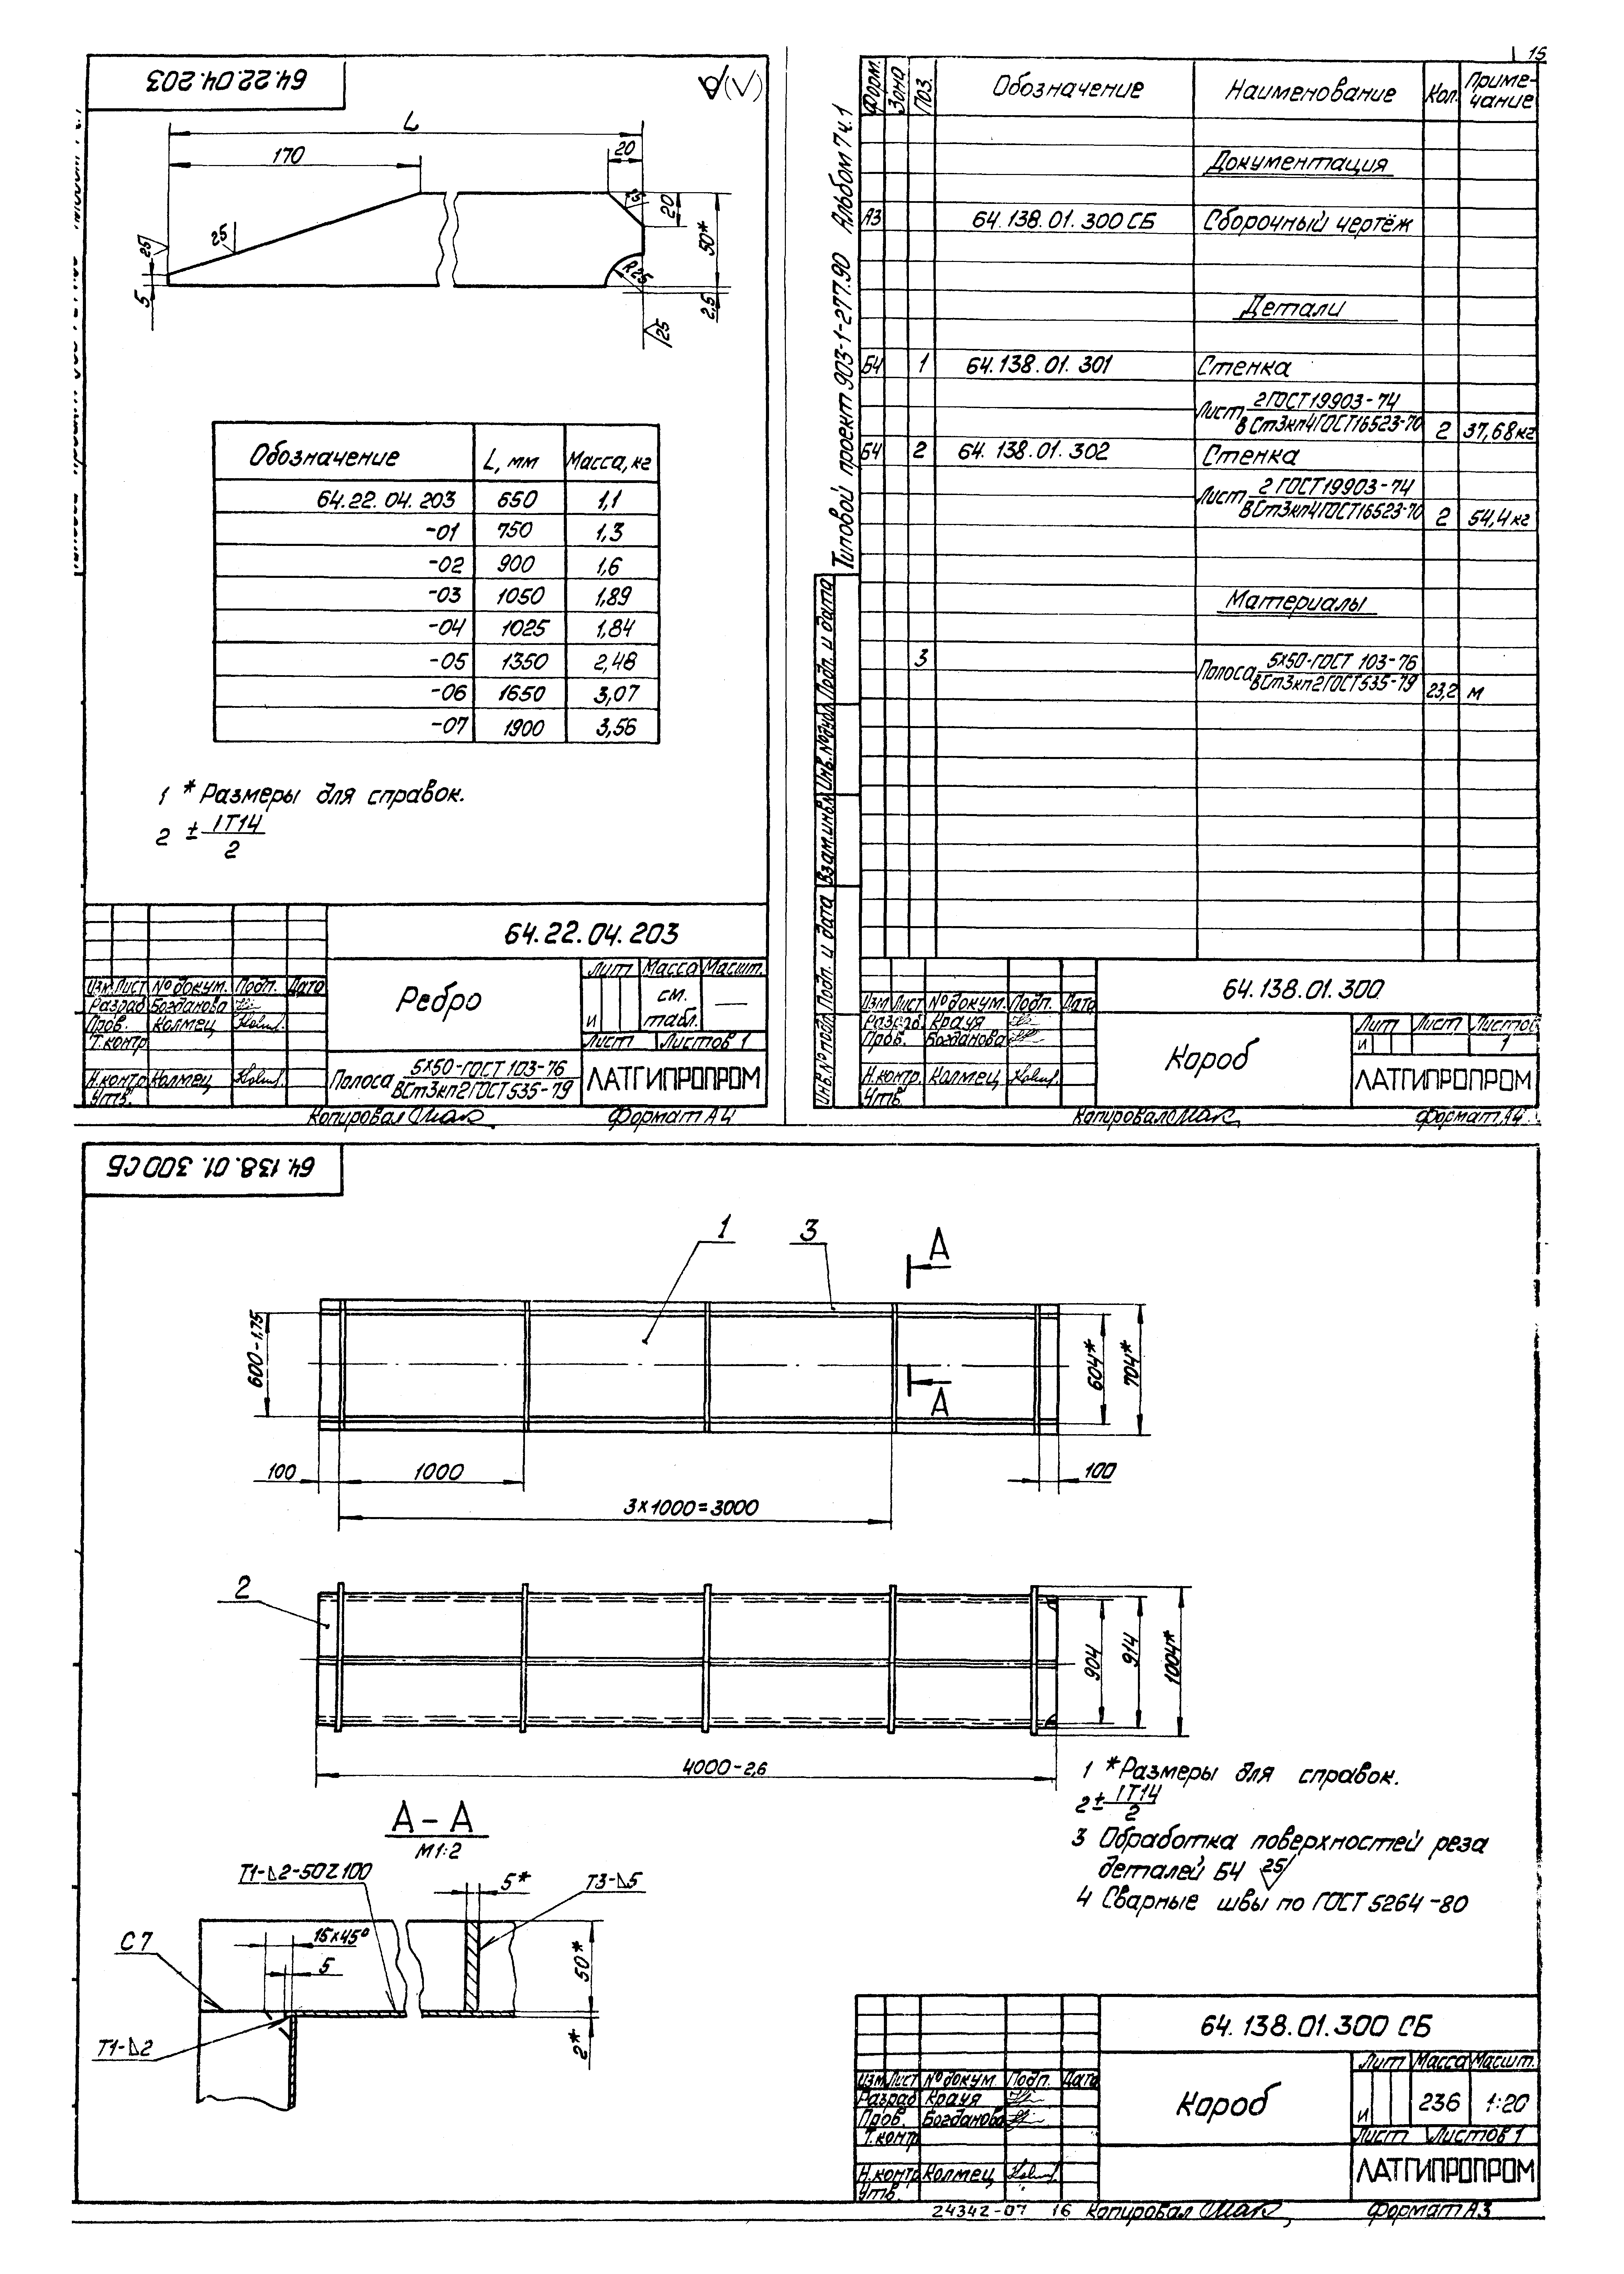 15
64.22.04.203
√(√)
L
170
20
25
25
25
20
50*
R25
5
2,5
25
Обозначение L, мм Масса, кг
64.22.04.203 650 1,1
-01 750 1,3
-02 900 1,6
-03 1050 1,89
-04 1025 1,84
-05 1350 2,48
-06 1650 3,07
-07 1900 3,56
1 * Размеры для справок.
2 ± IT14/2
64.22.04.203
Изм. Лист № докум. Подп. Дата
Разраб. Богданова
Пров. Колмец
Т.контр.
Н.контр. Колмец
Утв.
Ребро
Лит Масса Масшт.
И см. табл. —
Лист Листов 1
Полоса 5х50-ГОСТ 103-76 / ВСт3кп2ГОСТ535-79
ЛАТГИПРОПРОМ
Копировал Формат А4
Типовой проект 903-1-277.90 Альбом 7ч.1
Инв.№подл. Подп. и дата Взам.инв.№ Инв.№дубл. Подп. и дата
Форм. Зона Поз. Обозначение Наименование Кол. Приме-чание
Документация
А3 64.138.01.300 СБ Сборочный чертёж
Детали
Б4 1 64.138.01.301 Стенка
Лист 2 ГОСТ 19903-74 / ВСт3кп4ГОСТ16523-70 2 37,68 кг
Б4 2 64.138.01.302 Стенка
Лист 2 ГОСТ19903-74 / ВСт3кп4ГОСТ16523-70 2 54,4 кг
Материалы
3 Полоса 5х50-ГОСТ 103-76 / ВСт3кп2ГОСТ535-79 23,2 м
64.138.01.300
Изм Лист № докум. Подп. Дата
Разраб. Крауя
Пров. Богданова
Н.контр. Колмец
Утв.
Короб
Лит Лист Листов
И 1
ЛАТГИПРОПРОМ
Копировал Формат А4
64.138.01.300 СБ
1 3 А
600-1,75
604*
704*
А
100 1000 100
3х1000=3000
2
904
914
1004*
4000-2,6
А-А
М1:2
Т1-⊿2-50Z100
5*
Т3-⊿5
С7
15х45°
5
50*
2*
Т1-⊿2
1 *Размеры для справок.
2 ± IT14/2
3 Обработка поверхностей реза
деталей Б4 25
4 Сварные швы по ГОСТ 5264-80
64.138.01.300 СБ
Изм Лист № докум. Подп. Дата
Разраб Крауя
Пров. Богданова
Т.контр
Н.контр Колмец
Утв.
Короб
Лит Масса Масшт.
И 236 1:20
Лист Листов 1
ЛАТГИПРОПРОМ
24342-07 16 Копировал Формат А3